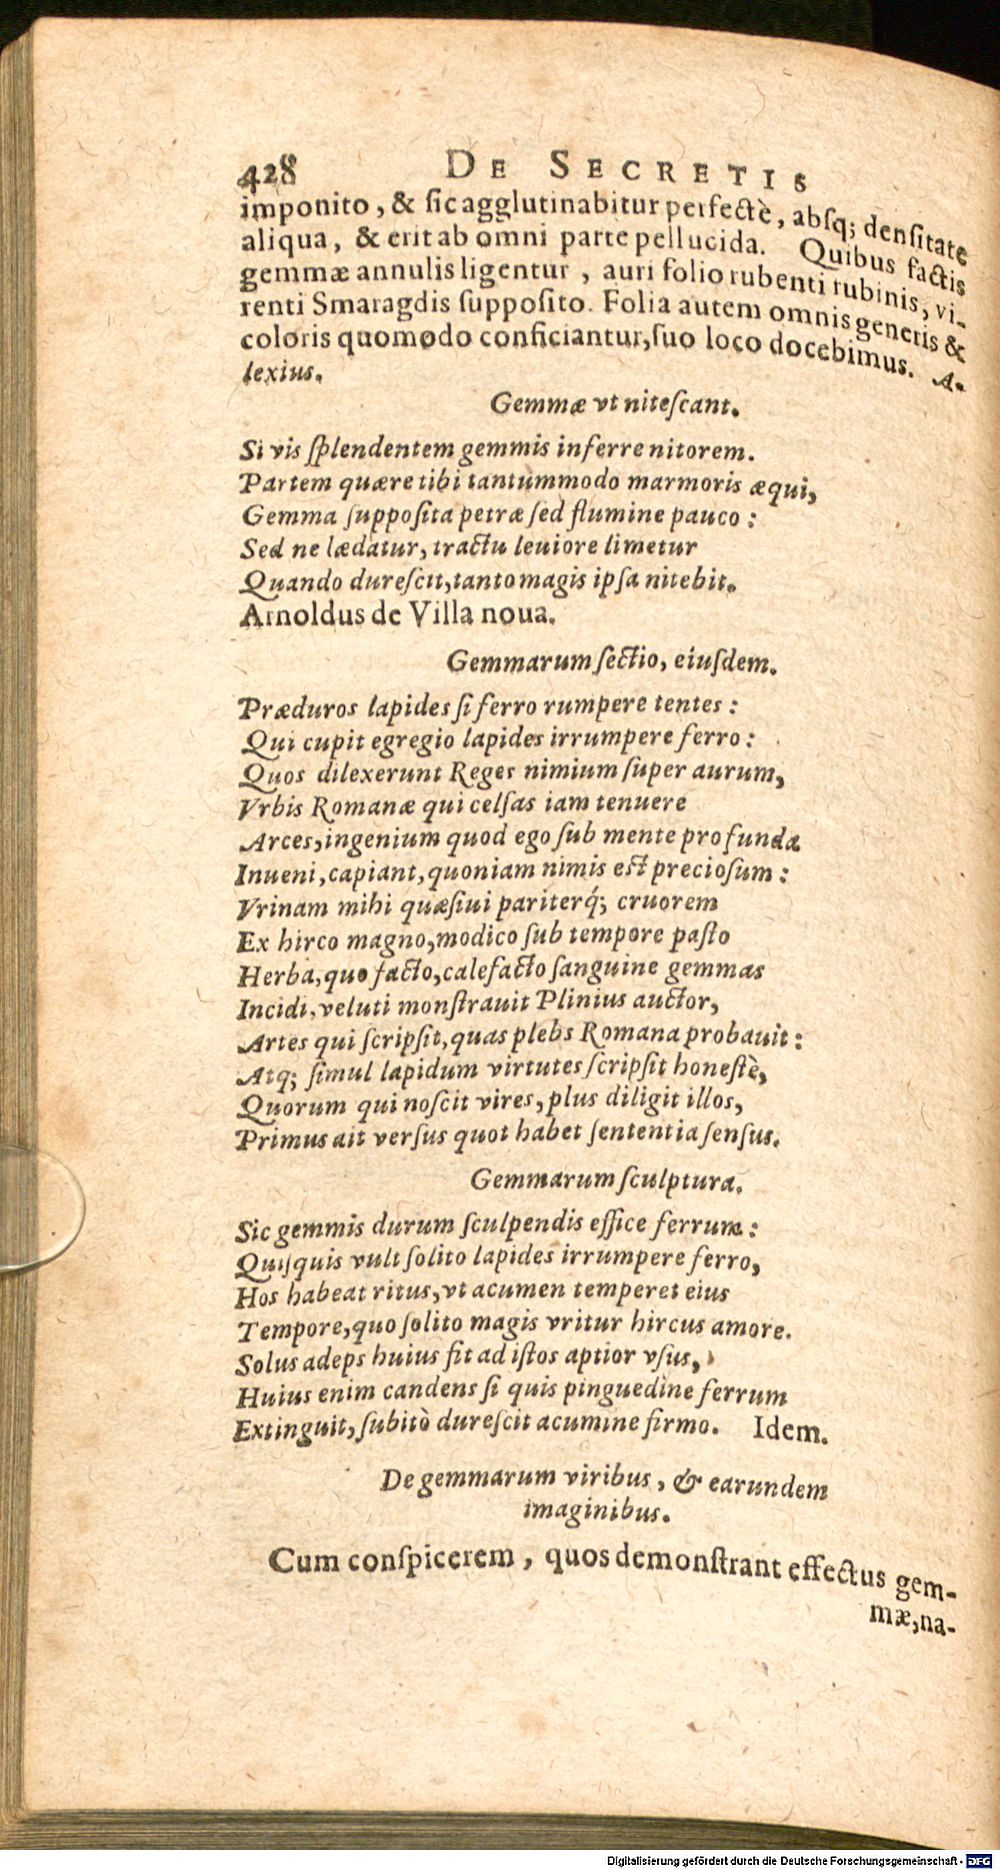 428 DE SECRETIS
imponito, & ſic agglutinabitur perfectè, abſq; denſitate
aliqua, & erit ab omni parte pellucida. Quibus factis
gemmæ annulis ligentur, auri folio rubenti rubinis, vi-
renti Smaragdis ſuppoſito. Folia autem omnis generis &
coloris quomodo conficiantur, ſuo loco docebimus. A-
lexius.
Gemmæ vt niteſcant.
Si vis ſplendentem gemmis inferre nitorem.
Partem quære tibi tantummodo marmoris æqui,
Gemma ſuppoſita petræ ſed flumine pauco:
Sed ne lædatur, tractu leuiore limetur
Quando dureſcit, tanto magis ipſa nitebit.
Arnoldus de Villa noua.
Gemmarum ſectio, eiuſdem.
Præduros lapides ſi ferro rumpere tentes:
Qui cupit egregio lapides irrumpere ferro:
Quos dilexerunt Reges nimium ſuper aurum,
Vrbis Romanæ qui celſas iam tenuere
Arces, ingenium quod ego ſub mente profunda
Inueni, capiant, quoniam nimis eſt precioſum:
Vrinam mihi quæſiui pariterq́; cruorem
Ex hirco magno, modico ſub tempore paſto
Herba, quo facto, calefacto ſanguine gemmas
Incidi, veluti monſtrauit Plinius auctor,
Artes qui ſcripſit, quas plebs Romana probauit:
Atq; ſimul lapidum virtutes ſcripſit honeſtè,
Quorum qui noſcit vires, plus diligit illos,
Primus ait verſus quot habet ſententia ſenſus.
Gemmarum ſculptura.
Sic gemmis durum ſculpendis effice ferrum:
Quiſquis vult ſolito lapides irrumpere ferro,
Hos habeat ritus, vt acumen temperet eius
Tempore, quo ſolito magis vritur hircus amore.
Solus adeps huius fit ad iſtos aptior vſus,
Huius enim candens ſi quis pinguedine ferrum
Extinguit, ſubitò dureſcit acumine firmo. Idem.
De gemmarum viribus, & earundem
imaginibus.
Cum conſpicerem, quos demonſtrant effectus gem-
mæ, na-
Digitalisierung gefördert durch die Deutsche Forschungsgemeinschaft - DFG